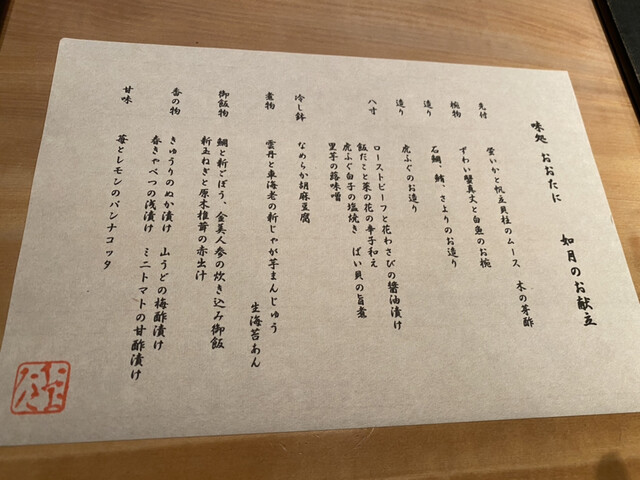 味処 おおたに　如月のお献立
先付
蛍いかと帆立貝柱のムース　木の芽酢
椀物
ずわい蟹真丈と白魚のお椀
造り
石鯛、鰆、さよりのお造り
造り
虎ふぐのお造り
八寸
ローストビーフと花わさびの醤油漬け
飯だこと菜の花の辛子和え
虎ふぐ白子の塩焼き　ばい貝の旨煮
里芋の蕗味噌
冷し鉢
なめらか胡麻豆腐
煮物
雲丹と車海老の新じゃが芋まんじゅう
生海苔あん
御飯物
鯛と新ごぼう、金美人参の炊き込み御飯
新玉ねぎと原木椎茸の赤出汁
香の物
きゅうりのぬか漬け　山うどの梅酢漬け
春きゃべつの浅漬け　ミニトマトの甘酢漬け
甘味
苺とレモンのパンナコッタ